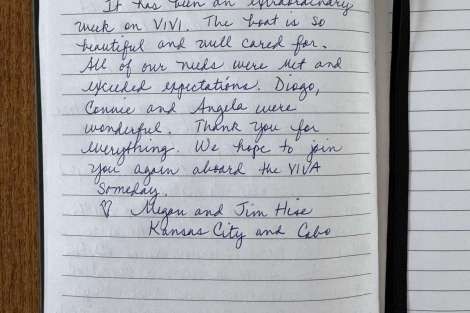 It has been an extraordinary
week on VIVI. The boat is so
beautiful and well cared for.
All of our needs were met and
exceeded expectations. Diogo,
Connie and Angela were
wonderful. Thank you for
everything. We hope to join
you again aboard the VIVA
Someday.
♡ Megan and Jim Hise
Kansas City and Cabo